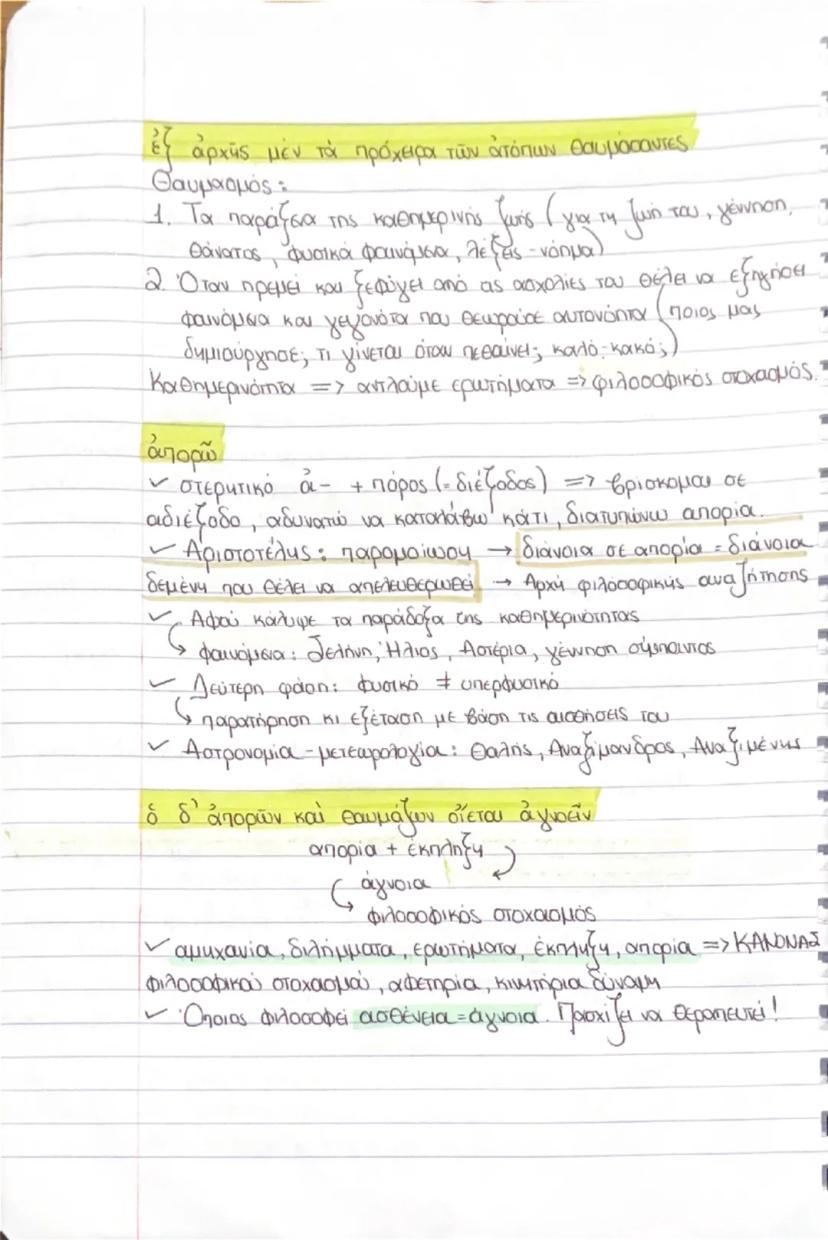 ἐξ ἀρχῆς μέν τὰ πρόχειρα τῶν ἀτόπων θαυμάσαντες
Θαυμασμός:
1. Τα παράξενα της καθημερινής ζωής (για τη ζωή του, γέννηση,
θάνατος, φυσικά φαινόμενα, λέξεις-νόημα)
2. Όταν ηρεμεί και ξεφύγει από τις ασχολίες του θέλει να εξηγήσει
φαινόμενα και γεγονότα που θεωρούσε αυτονόητα (ποιος μας
δημιούργησε; τι γίνεται όταν πεθαίνει; καλό-κακό;)
Καθημερινότητα => αντλούμε ερωτήματα => φιλοσοφικός στοχασμός.
ἀπορῶ
✓ στερητικό ἀ- + πόρος (=διέξοδος) => βρίσκομαι σε
αδιέξοδο, αδυνατώ να καταλάβω κάτι, διατυπώνω απορία.
✓ Αριστοτέλης: παρομοίωση → διάνοια σε απορία = διάνοια
δεμένη που θέλει να απελευθερωθεί → Αρχή φιλοσοφικής αναζήτησης
✓ Αφού κάλυψε τα παράδοξα της καθημερινότητας
↳ φαινόμενα: Σελήνη, Ήλιος, Αστέρια, γέννηση σύμπαντος
✓ Δεύτερη φάση: φυσικό ≠ υπερφυσικό
↳ παρατήρηση κι εξέταση με βάση τις αισθήσεις του
✓ Αστρονομία-μετεωρολογία: Θαλής, Αναξίμανδρος, Αναξιμένης
ὁ δ' ἀπορῶν καὶ θαυμάζων οἴεται ἀγνοεῖν
απορία + έκπληξη
άγνοια
φιλοσοφικός στοχασμός
✓ αμηχανία, διλήμματα, ερωτήματα, έκπληξη, απορία => ΚΑΝΟΝΑΣ
φιλοσοφικού στοχασμού, αφετηρία, κινητήρια δύναμη
✓ Όποιος φιλοσοφεί ασθένεια = άγνοια. Πασχίζει να θεραπευτεί!